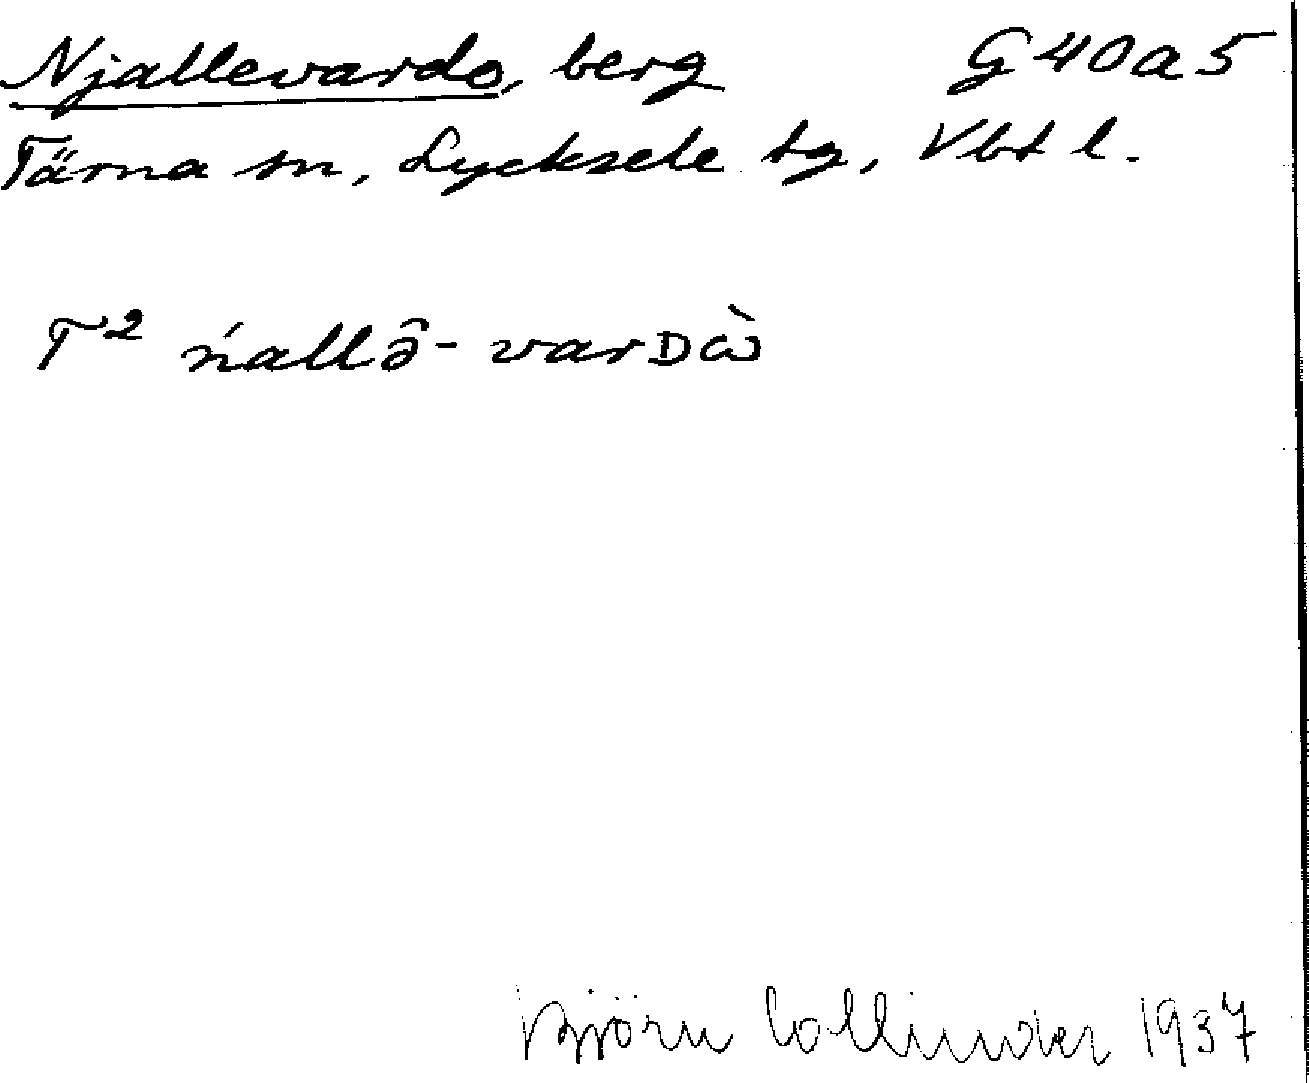 Njallevardo, berg G40a5
Tärna sn, Lycksele tg, Vbt l.
T² ńallə̑-varᴅὼ
Björn Collinder 1937